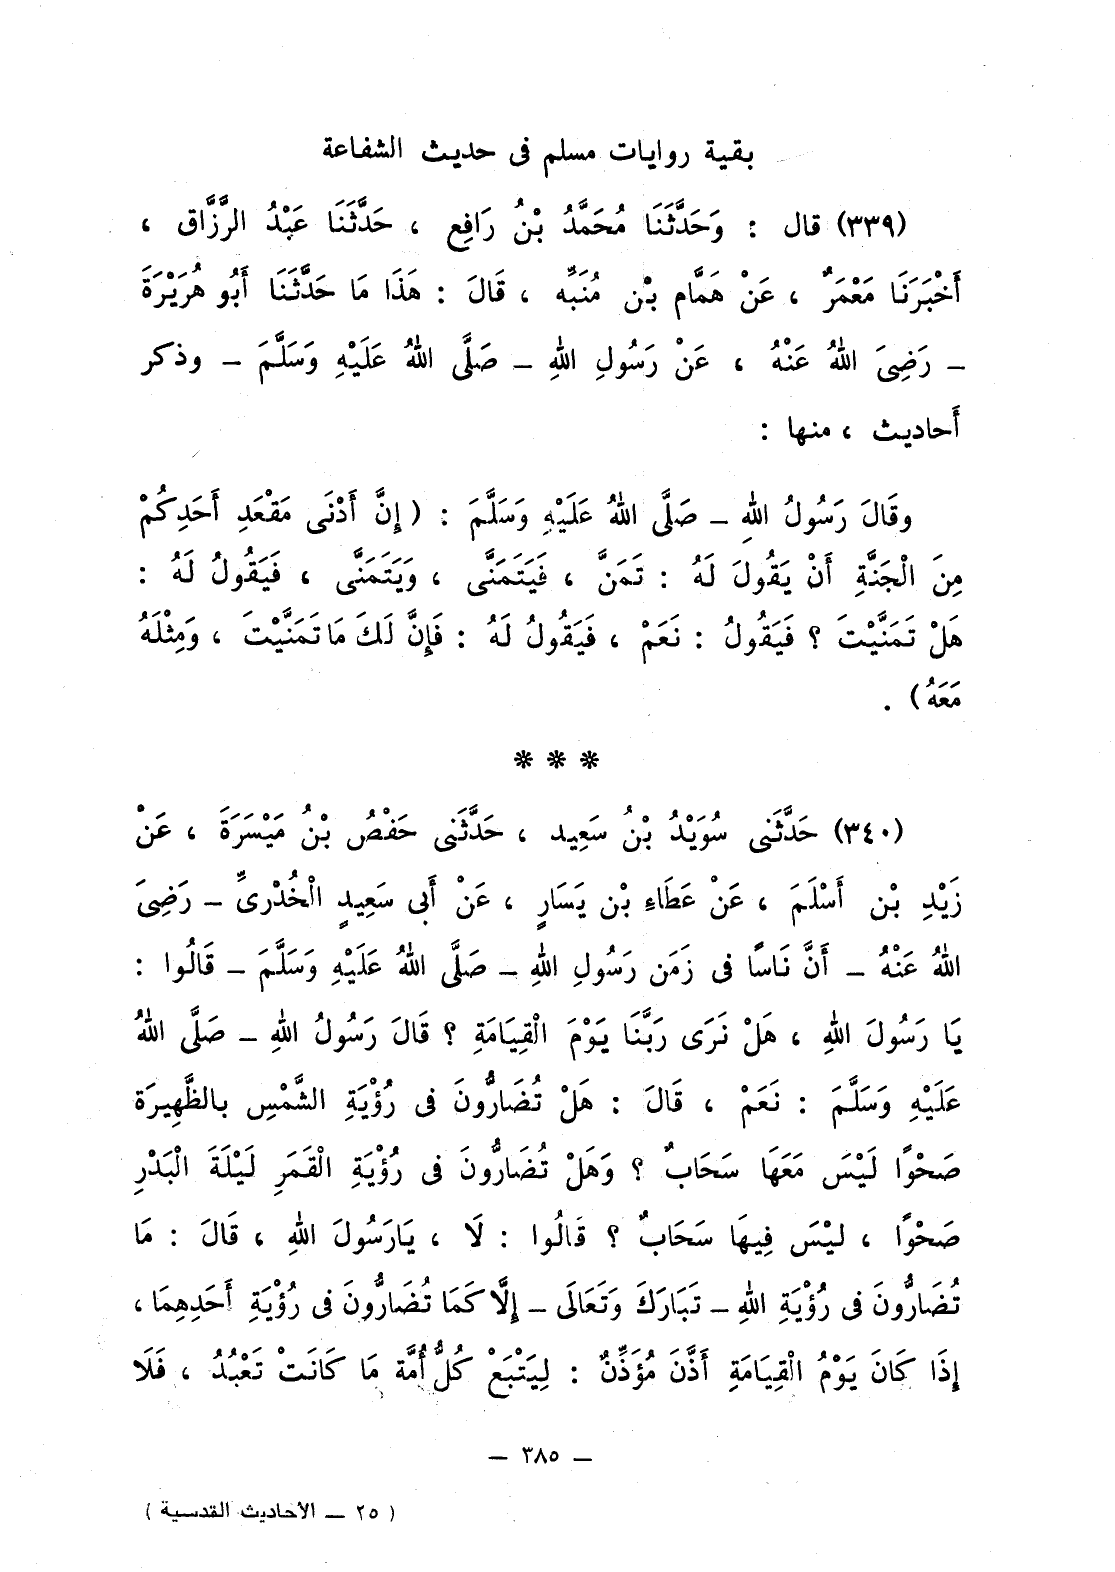 بقية روايات مسلم فى حديث الشفاعة
(٣٣٩) قال : وَحَدَّثَنَا مُحَمَّدُ بْنُ رَافِعٍ ، حَدَّثَنَا عَبْدُ الرَّزَّاقِ ،
أَخْبَرَنَا مَعْمَرٌ ، عَنْ هَمَّامِ بْنِ مُنَبِّهٍ ، قَالَ : هَذَا مَا حَدَّثَنَا أَبُو هُرَيْرَةَ
ـ رَضِىَ اللهُ عَنْهُ ، عَنْ رَسُولِ اللهِ ـ صَلَّى اللهُ عَلَيْهِ وَسَلَّمَ ـ وذكر
أَحاديث ، منها :
وقَالَ رَسُولُ اللهِ ـ صَلَّى اللهُ عَلَيْهِ وَسَلَّمَ : ( إِنَّ أَدْنَى مَقْعَدِ أَحَدِكُمْ
مِنَ الْجَنَّةِ أَنْ يَقُولَ لَهُ : تَمَنَّ ، فَيَتَمَنَّى ، وَيَتَمَنَّى ، فَيَقُولُ لَهُ :
هَلْ تَمَنَّيْتَ ؟ فَيَقُولُ : نَعَمْ ، فَيَقُولُ لَهُ : فَإِنَّ لَكَ مَا تَمَنَّيْتَ ، وَمِثْلَهُ
مَعَهُ) .
* * *
(٣٤٠) حَدَّثَنِى سُوَيْدُ بْنُ سَعِيدٍ ، حَدَّثَنِى حَفْصُ بْنُ مَيْسَرَةَ ، عَنْ
زَيْدِ بْنِ أَسْلَمَ ، عَنْ عَطَاءِ بْنِ يَسَارٍ ، عَنْ أَبِى سَعِيدٍ الْخُدْرِىِّ ـ رَضِىَ
اللهُ عَنْهُ ـ أَنَّ نَاسًا فِى زَمَنِ رَسُولِ اللهِ ـ صَلَّى اللهُ عَلَيْهِ وَسَلَّمَ ـ قَالُوا :
يَا رَسُولَ اللهِ ، هَلْ نَرَى رَبَّنَا يَوْمَ الْقِيَامَةِ ؟ قَالَ رَسُولُ اللهِ ـ صَلَّى اللهُ
عَلَيْهِ وَسَلَّمَ : نَعَمْ ، قَالَ : هَلْ تُضَارُّونَ فِى رُؤْيَةِ الشَّمْسِ بِالظَّهِيرَةِ
صَحْوًا لَيْسَ مَعَهَا سَحَابٌ ؟ وَهَلْ تُضَارُّونَ فِى رُؤْيَةِ الْقَمَرِ لَيْلَةَ الْبَدْرِ
صَحْوًا ، لَيْسَ فِيهَا سَحَابٌ ؟ قَالُوا : لَا ، يَارَسُولَ اللهِ ، قَالَ : مَا
تُضَارُّونَ فِى رُؤْيَةِ اللهِ ـ تَبَارَكَ وَتَعَالَى ـ إِلَّا كَمَا تُضَارُّونَ فِى رُؤْيَةِ أَحَدِهِمَا ،
إِذَا كَانَ يَوْمُ الْقِيَامَةِ أَذَّنَ مُؤَذِّنٌ : لِيَتْبَعْ كُلُّ أُمَّةٍ مَا كَانَتْ تَعْبُدُ ، فَلَا
ـ ٣٨٥ ـ
( ٢٥ ـ الأحاديث القدسية )